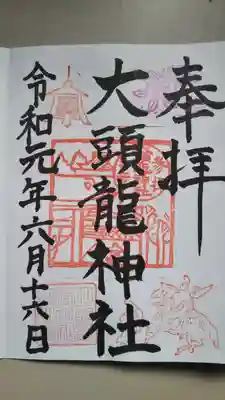 奉拝
大頭龍神社
令和元年六月十六日